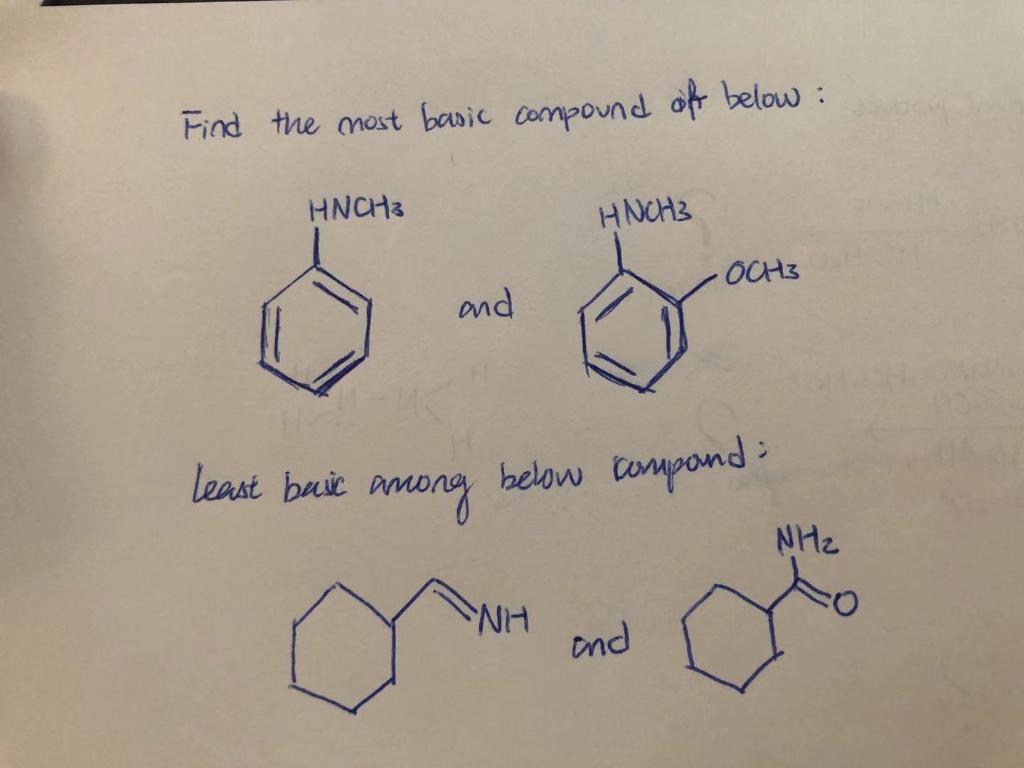 Find the most basic compound of below :
HNCH3 HNCH3
OCH3
and
least basic among below compound :
NH2
NH and O